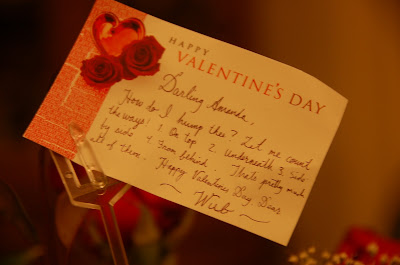 HAPPY
VALENTINE'S DAY
Darling Amanda,
How do I hump thee? Let me count
the ways! 1. On top 2. underneath 3. Side
by side 4. From behind. Thats pretty much
all of them. Happy Valentines Day, Dear.
~ Wub ~